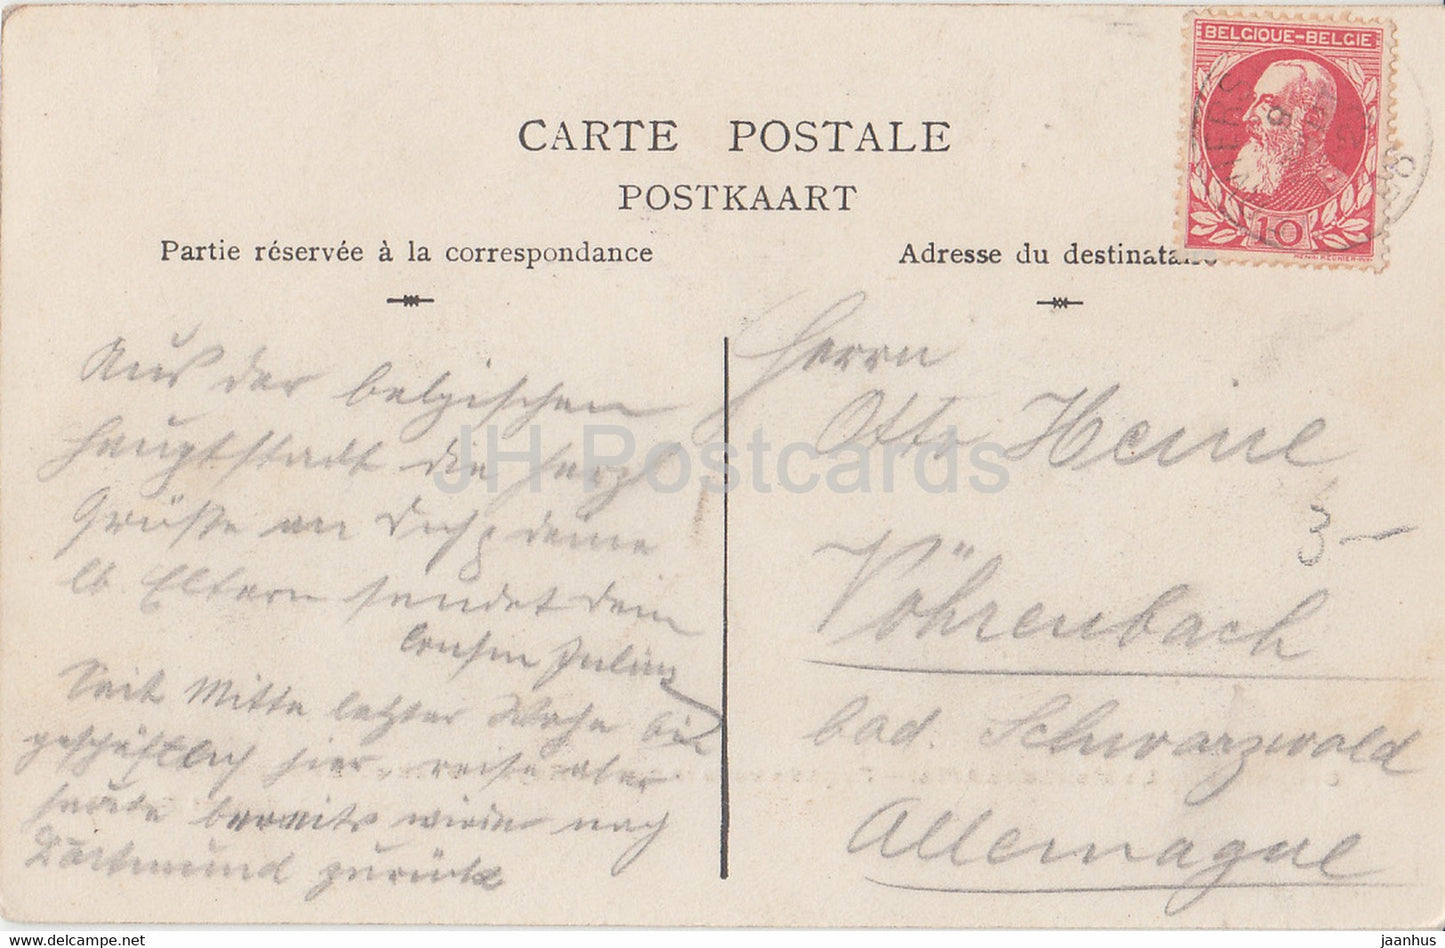 BELGIQUE-BELGIE
10
CARTE POSTALE
POSTKAART
Partie réservée à la correspondance
Adresse du destinataire
Aus der belgischen
Hauptstadt die herzl
Grüße an Dich & deine
lb Eltern sendet dein
Cousin Julius
Seit Mitte letzter Woche bin
geschäftlich hier, reise aber
heute bereits wieder nach
Dortmund zurück
Herrn
Otto Heine
3-
Vöhrenbach
bad. Schwarzwald
Allemagne
JH Postcards
hippostcard.com
jaanhus